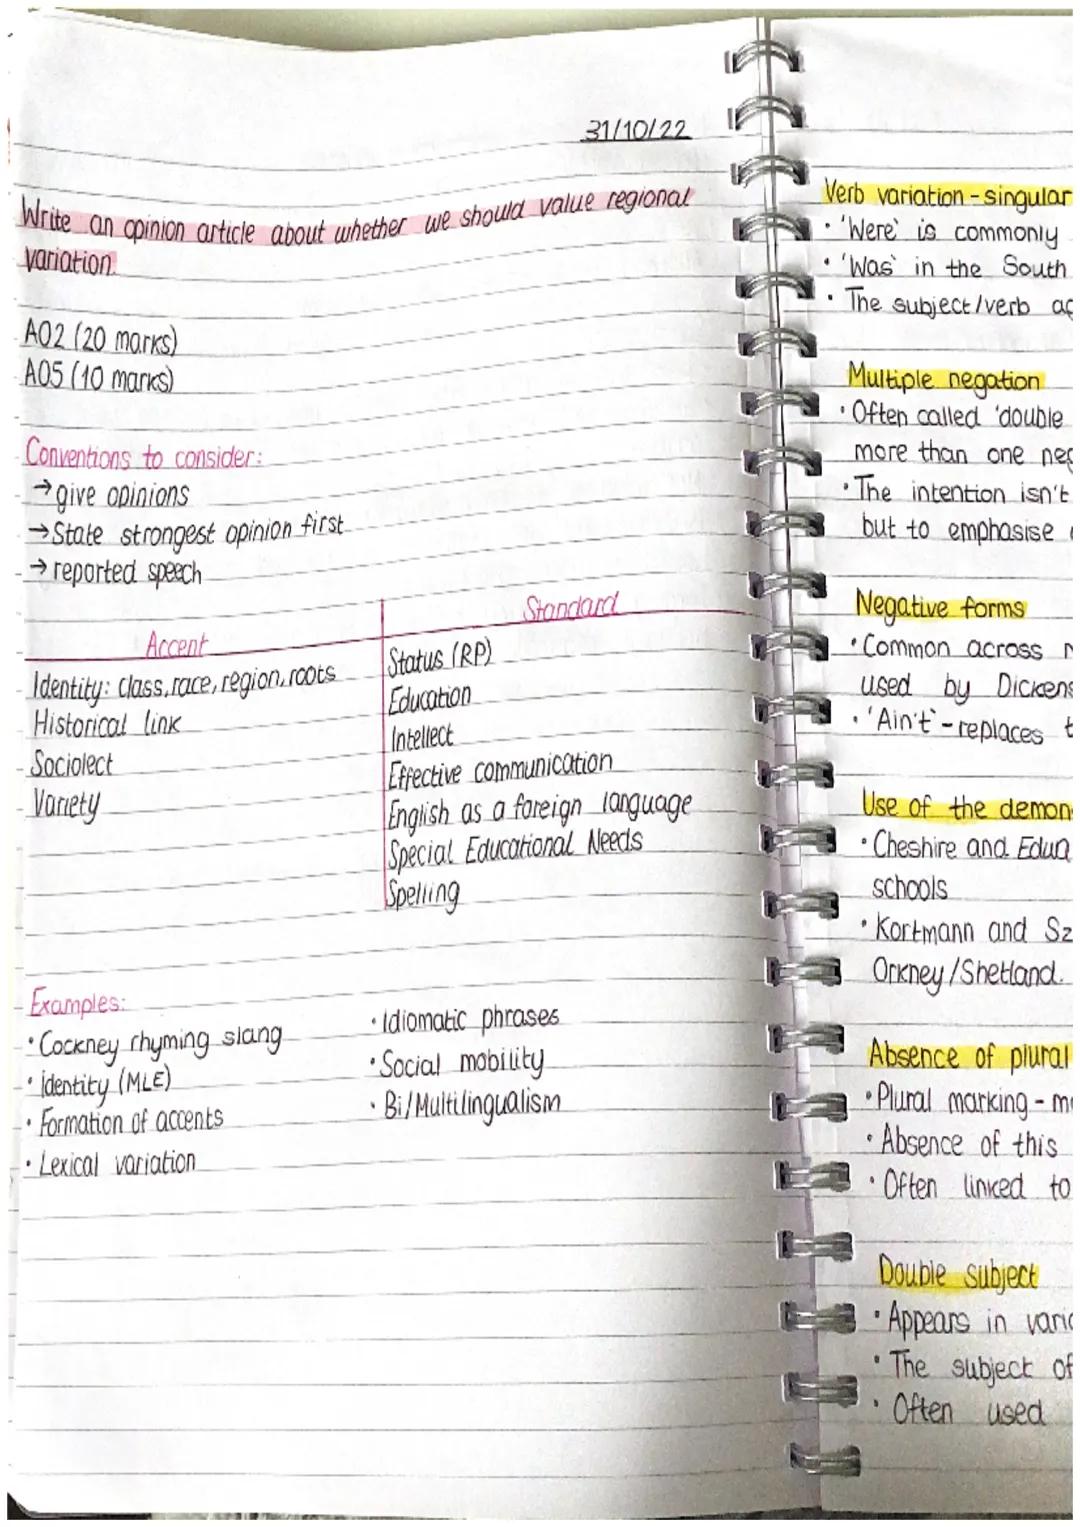 31/10/22
Write an opinion article about whether we should value regional
variation.
AO2 (20 marks)
AO5 (10 marks)
Conventions to consider:
→ give opinions
→ State strongest opinion first
→ reported speech
Accent
Identity: class, race, region, roots
Historical link
Sociolect
Variety
Standard
Status (RP)
Education
Intellect
Effective communication
English as a foreign language
Special Educational Needs
Spelling
Examples:
• Cockney rhyming slang
• identity (MLE)
• Formation of accents
• Lexical variation
• Idiomatic phrases
• Social mobility
• Bi/Multilingualism
Verb variation - singular
• 'Were' is commonly
• 'Was' in the South
• The subject/verb
Multiple negation
• Often called 'double
more than one
• The intention isn't
but to emphasise
Negative forms
• Common across
used by Dickens
• 'Ain't' - replaces
Use of the
• Cheshire and
schools
• Kortmann and
Orkney/Shetland.
Absence of plural
• Plural marking -
• Absence of this
• Often linked to
Double subject
• Appears in
• The subject of
• Often used